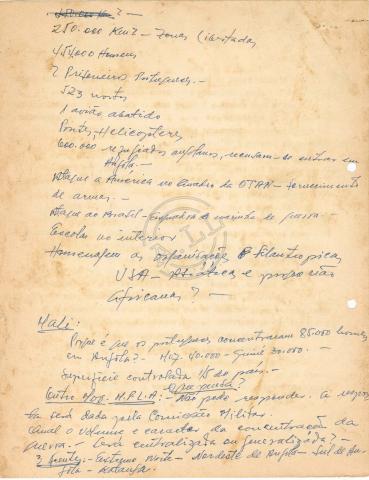 250.000 Km2 - Zonas libertadas
454.000 Homens
2 Prisioneiros Portugueses.-
523 mortos
1 avião abatido
Pontes, Helicopteros
600.000 refugiados angolanos, recusam-se entrar em
Angola.-
Ataque a América no quadro da OTAN - fornecimento
de armas.-
Ataque ao Brasil - de marinha de guerra.-
Escolas no interior
Homenagem as organizações Filantropicas
USA - Asiática e proprias
Africanas? -
Mali:
Porque é que os portugueses concentraram 85.000 homens
em Angola? - Moz. 40.000 - Guiné 30.000.-
Superficie controlada 1/5 do país.-
M.P.L.A.: - Não pode responder. A respos
ta será dada pela Comissão Militar.
Qual o volume e caracter da concentração da
guerra.- Será centralizada ou generalizada? -
3 frentes: - Extremo Norte - Nordeste de Angola - Sul de An-
gola - Katanga.